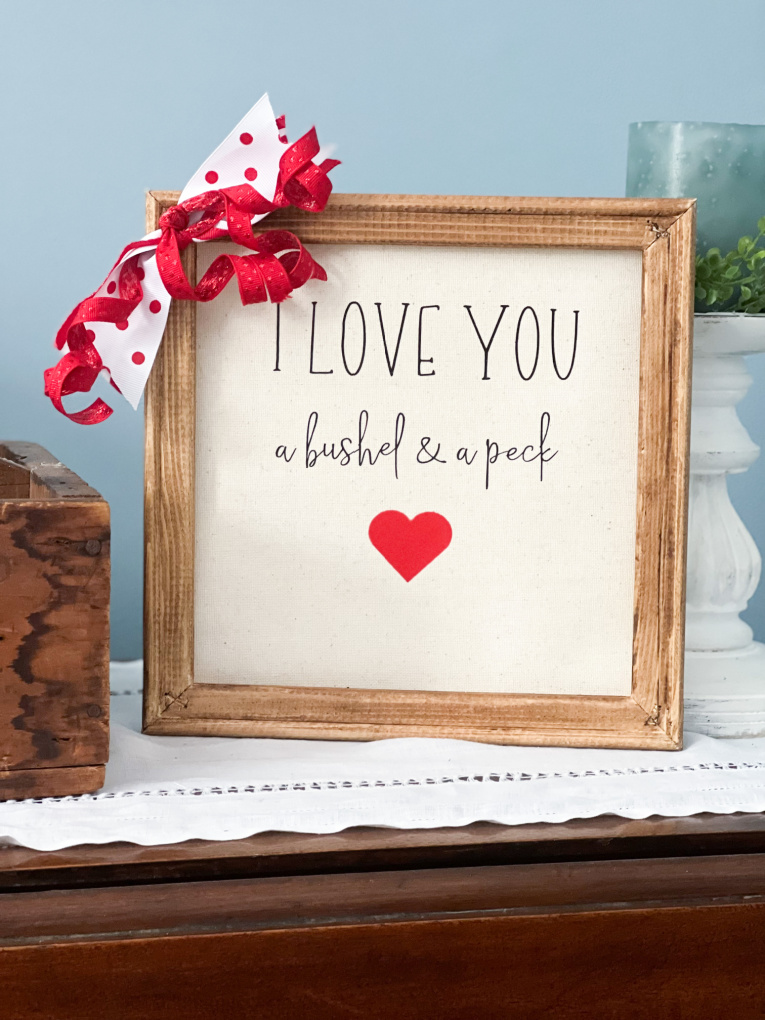 I LOVE YOU
a bushel & a peck